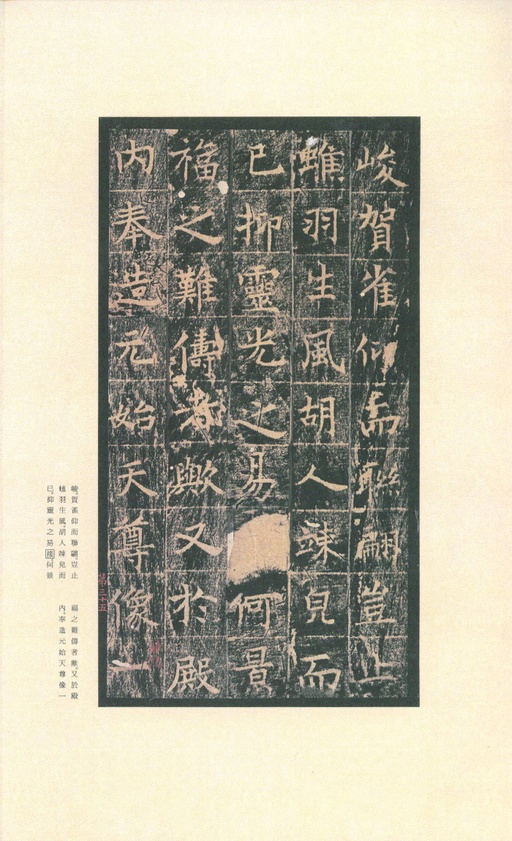 峻賀雀仰而聯翩豈止
雖羽生風胡人竦皃而
已抑靈光之易何景
福之難儔者歟又於殿
内奉造元始天尊像一
峻賀雀仰而聯翩豈止
雖羽生風胡人竦皃而
已抑靈光之易接何景
福之難儔者歟又於殿
内奉造元始天尊像一
第三十五